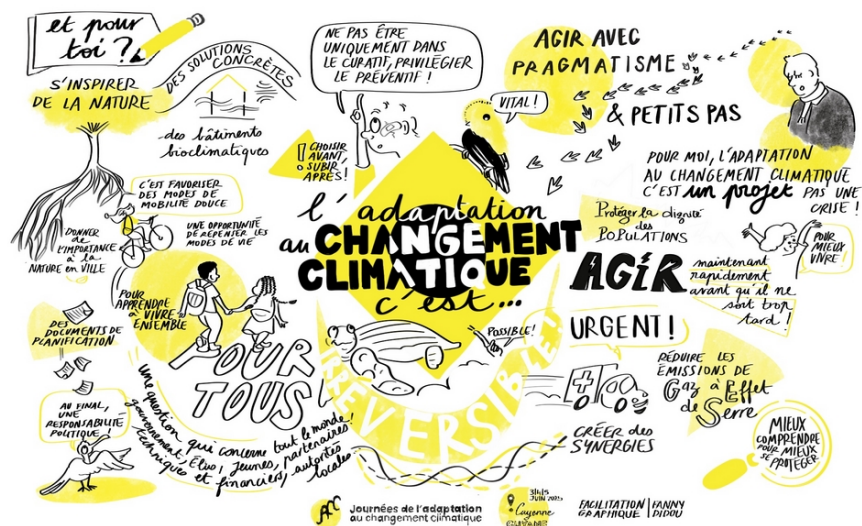 et pour
toi ?
S'INSPIRER
DE LA NATURE
DES SOLUTIONS
CONCRÈTES
des bâtiments
bioclimatiques
NE PAS ÊTRE
UNIQUEMENT DANS
LE CURATIF, PRIVILÉGIER
LE PRÉVENTIF !
CHOISIR
AVANT,
SUBIR
APRÈS !
VITAL !
AGIR AVEC
PRAGMATISME
& PETITS PAS
POUR MOI, L'ADAPTATION
AU CHANGEMENT CLIMATIQUE
C'EST un projet PAS UNE
CRISE !
C'EST FAVORISER
DES MODES DE
MOBILITÉ DOUCE
UNE OPPORTUNITÉ
DE REPENSER LES
MODES DE VIE
DONNER
de
L'IMPORTANCE
à la
NATURE en VILLE
l'adaptation
au CHANGEMENT
CLIMATIQUE
c'est...
Protéger la dignité
des
POPULATIONS
POUR
MIEUX
VIVRE !
AGIR
maintenant
rapidement
avant qu'il ne
soit trop
tard !
POUR
APPRENDRE
à VIVRE
ENSEMBLE
DES
DOCUMENTS DE
PLANIFICATION
POUR
TOUS
POSSIBLE !
IRRÉVERSIBLE !
URGENT !
RÉDUIRE LES
ÉMISSIONS DE
Gaz à Effet
de Serre
AU FINAL,
UNE
RESPONSABILITÉ
POLITIQUE !
une question qui concerne tout le monde !
gouvernement, Élus, jeunes, partenaires
techniques et financiers, autorités
locales
CRÉER des
SYNERGIES
MIEUX
COMPRENDRE
POUR MIEUX
SE PROTÉGER
ACC
Journées de l'adaptation
au changement climatique
JUIN 2025
Cayenne
GUYANE
FACILITATION
GRAPHIQUE
FANNY
DIDOU